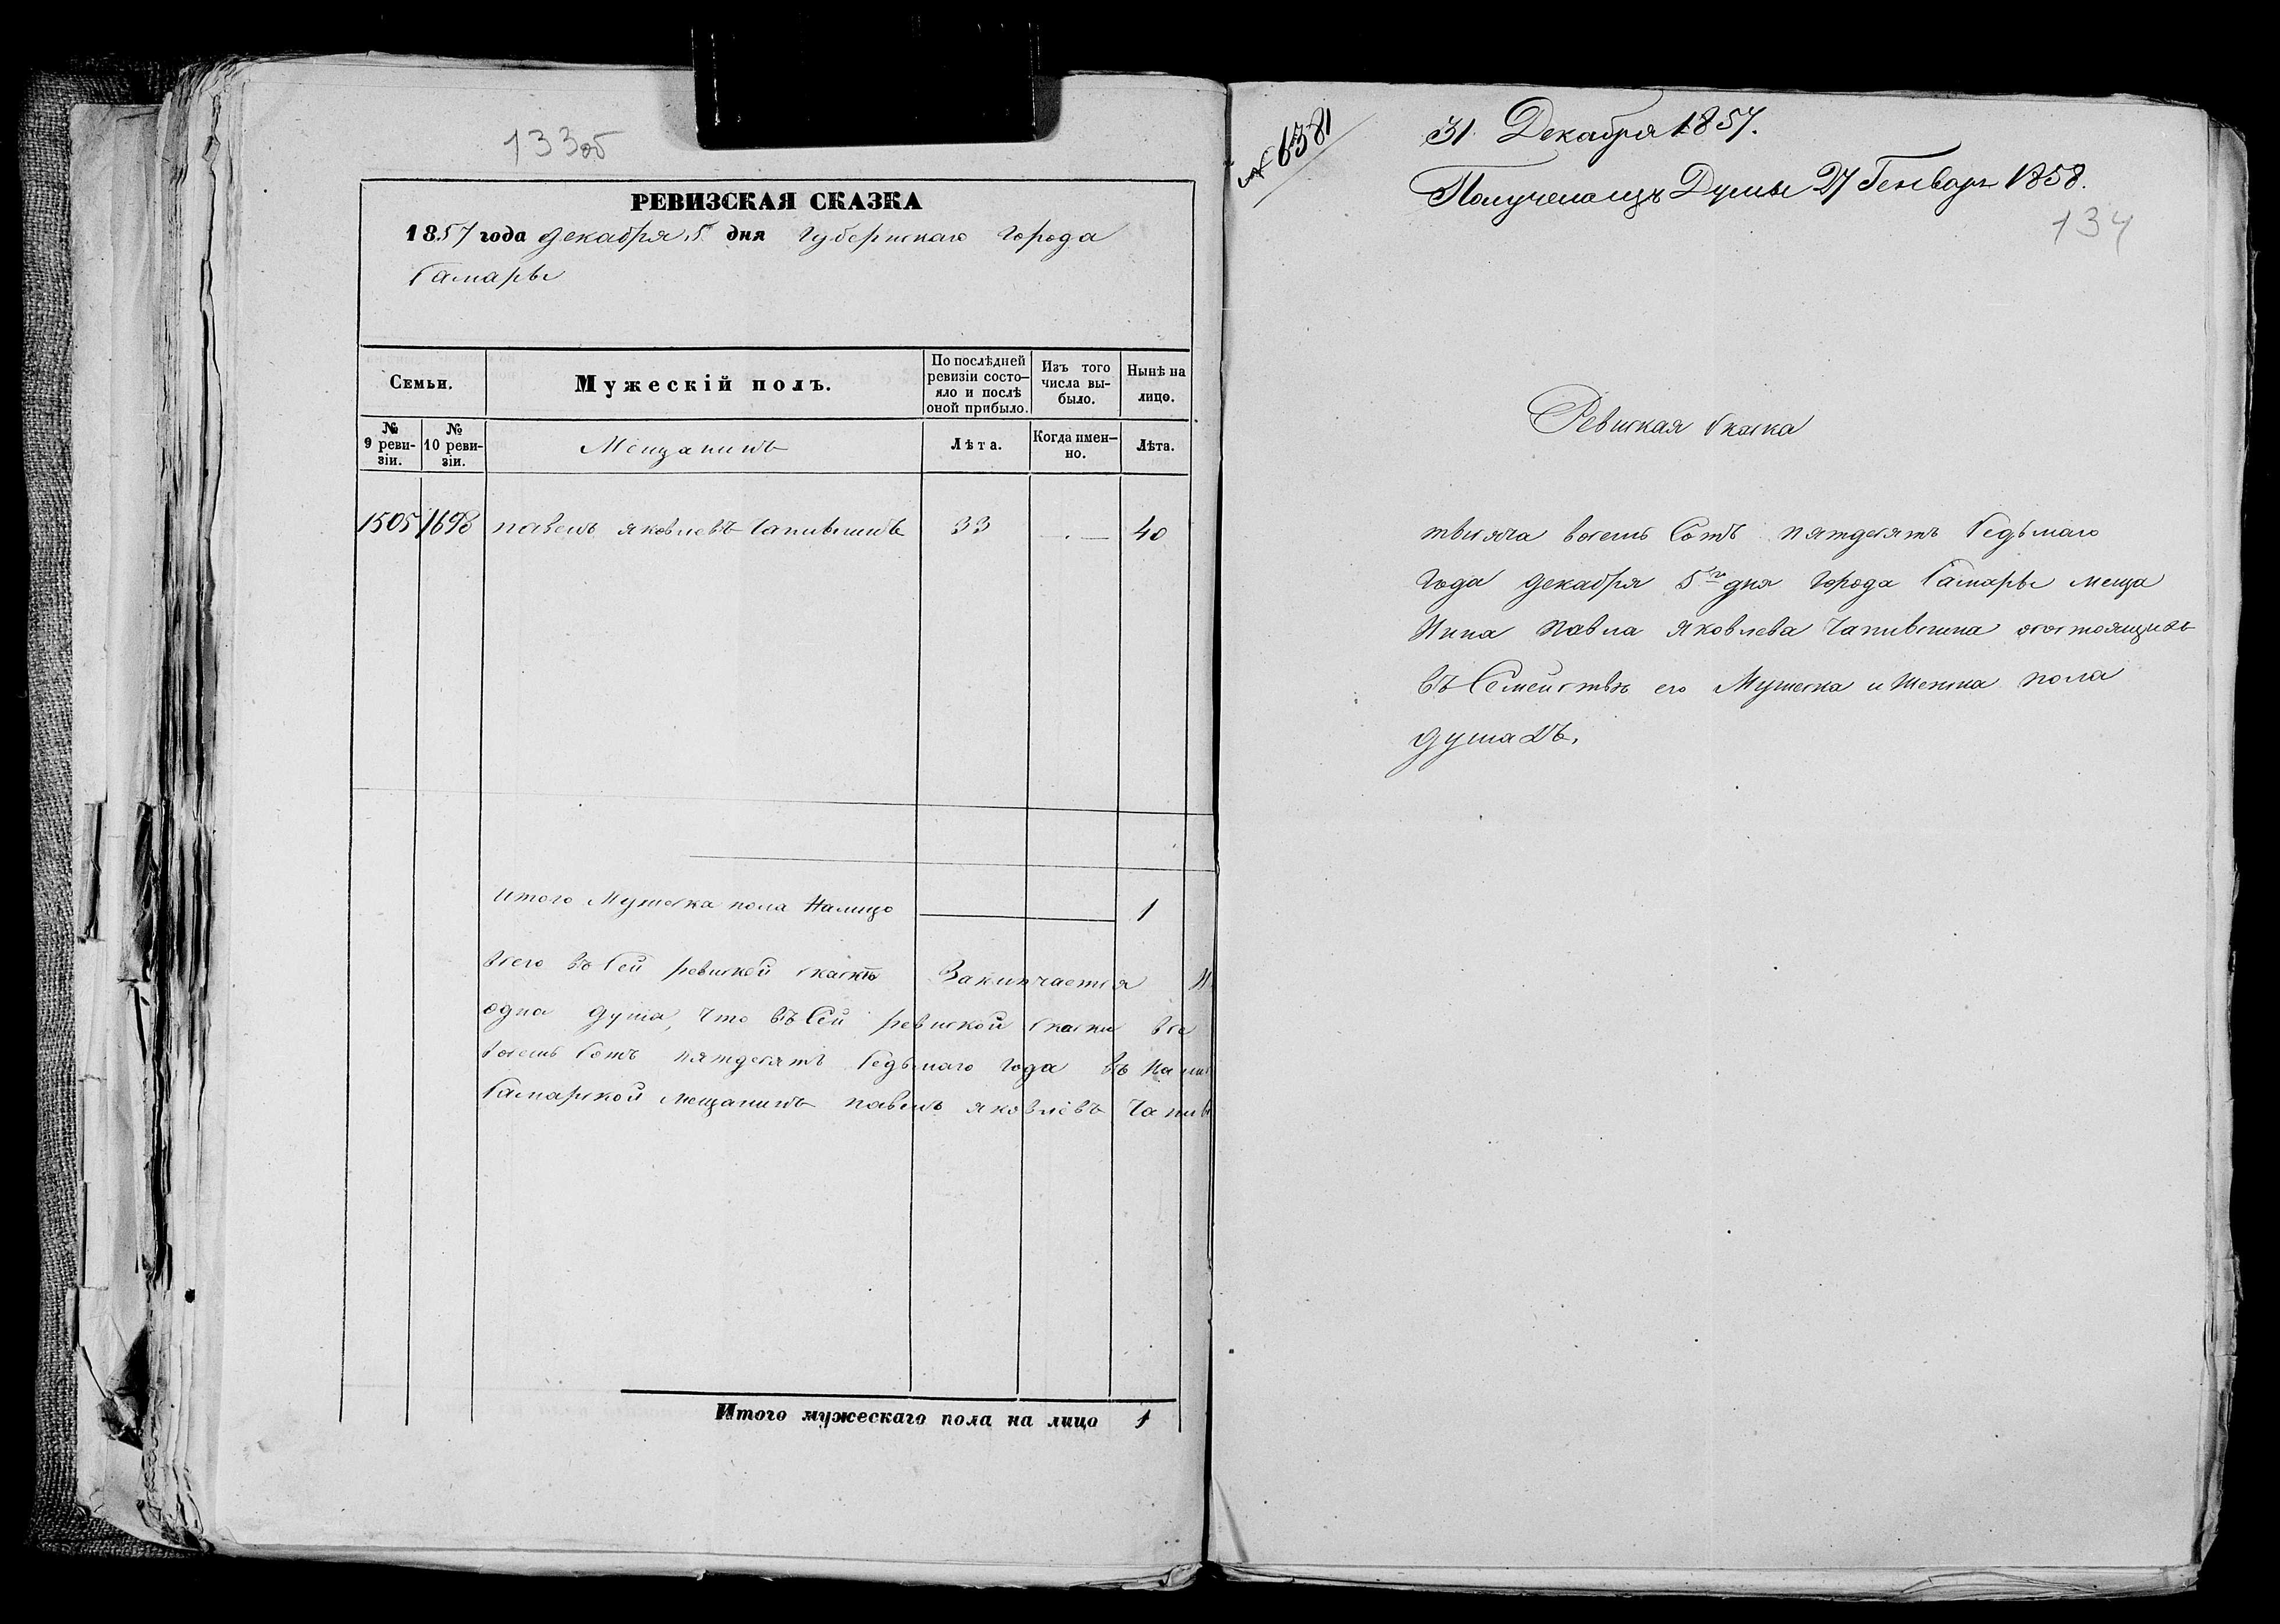 133об
РЕВИЗСКАЯ СКАЗКА
1857 года декабря 5 дня губернскаго города
Самары
Семьи.
Мужескій полъ.
По послѣдней ревизіи состо-
яло и послѣ оной прибыло.
Изъ того числа вы-
было.
Нынѣ на лицо.
№ 9 реви-
зіи.
№ 10 реви-
зіи.
Мещанинъ
Лѣта.
Когда имен-
но.
Лѣта.
1505 1698 павелъ яковлевъ 33 40
итого Мужеска пола Налицо 1
всего въ Сей ревиской скаскѣ Заключается
одна душа, что въ Сей ревиской скаски все
восемь Сотъ пятдесятъ Седьмаго года въ
Самарской мещанинъ павелъ яковлевъ
Итого мужескаго пола на лицо 1
№ 6381
31 Декабря 1857.
Получена изъ Думы 27 Генваря 1858.
134
Ревиская Скаска
тысяча восемь Сотъ пятдесятъ Седьмаго
Года декабря 5го дня города Самары меща
Нина Павла Яковлева осостоящихъ
въ Семействѣ его Мужеска и Женска пола
душахъ.